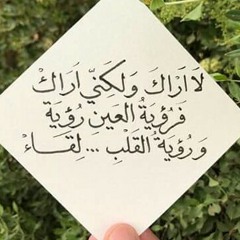 لَا اَرَاكَ وَلٰكِنّي اَرَاكْ
فَرُؤيَةُ العَينِ رُؤيَة
وَرُؤيَةُ القَلْبِ ... لِقَاءْ